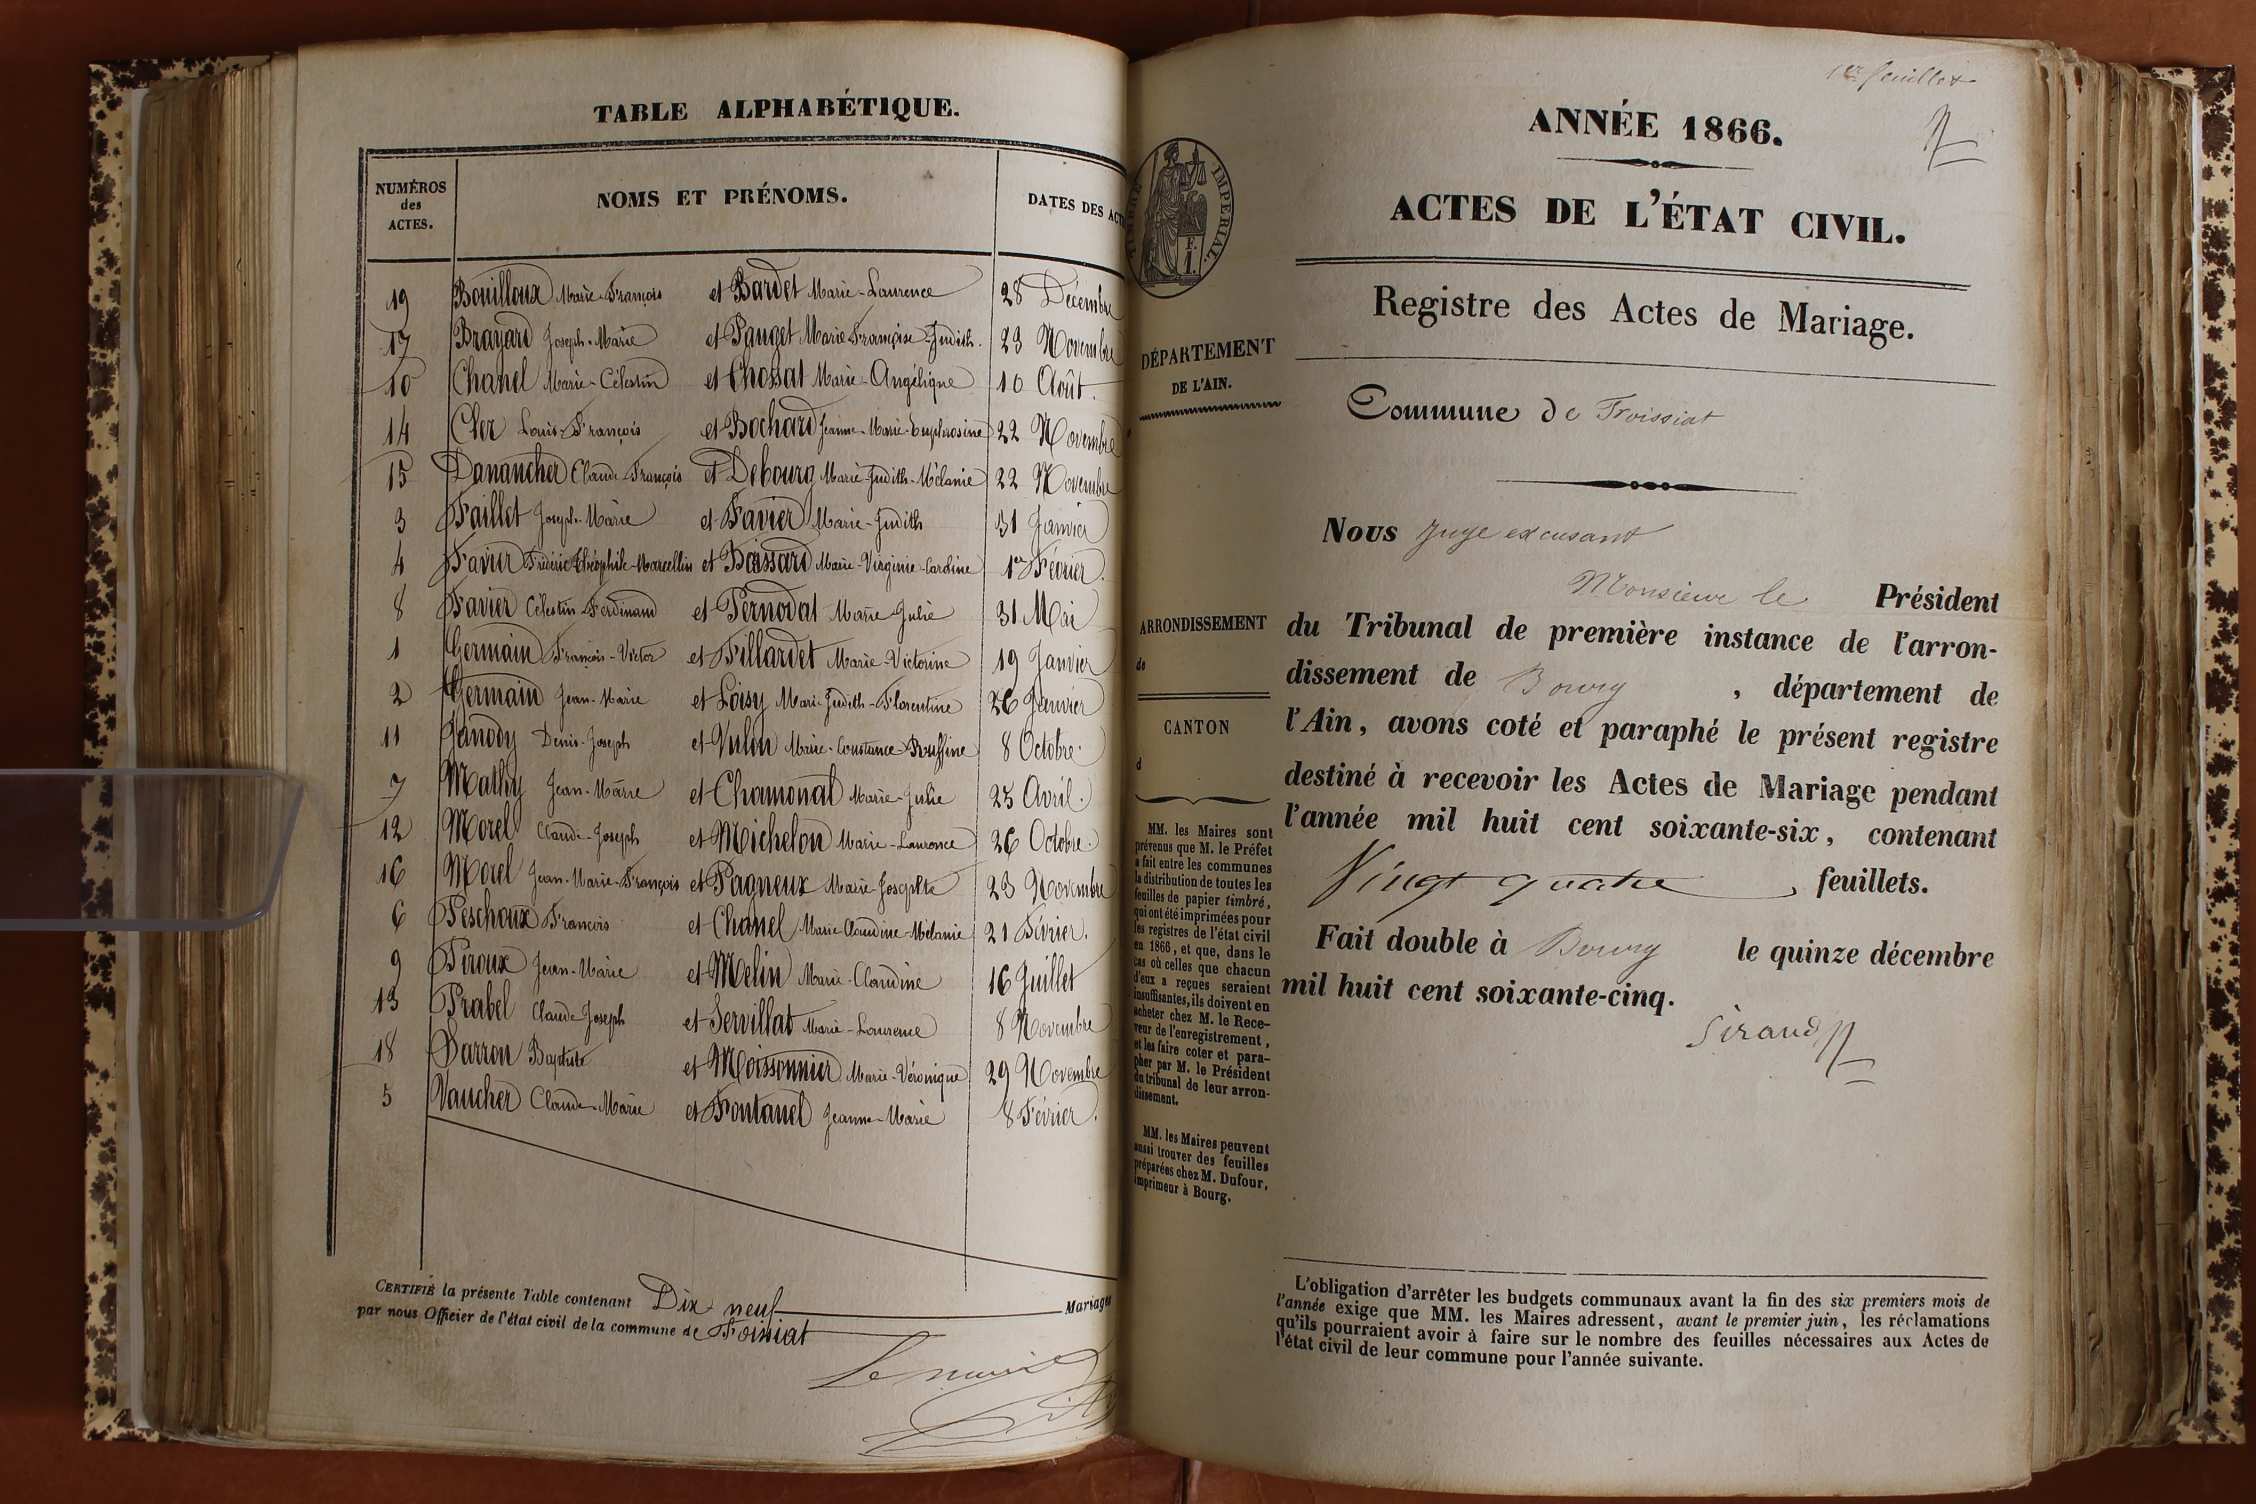 TABLE ALPHABÉTIQUE.
NUMÉROS des ACTES. NOMS ET PRÉNOMS. DATES DES ACT
19 Bouilloux Marie-François et Bardet Marie-Laurence 28 Décembre
17 Brayard Joseph-Marie et Pauget Marie Françoise-Judith. 23 Novembre
10 Chanel Marie-Célestin et Chossat Marie-Angélique 10 Août.
14 Cler Louis-François et Bochard Jeanne-Marie-Euphrosine 22 Novembre
15 Danancher Claude-François et Debourg Marie-Judith-Mélanie 22 Novembre
3 Faillet Joseph-Marie et Favier Marie-Judith 31 Janvier
4 Favier Frédéric Théophile-Marcellin et Boissard Marie-Virginie-Caroline 1er Février.
8 Favier Célestin-Ferdinand et Pernodat Marie-Julie 31 Mai
1 Germain François-Victor et Fillardet Marie-Victorine 19 Janvier
2 Germain Jean-Marie et Loisy Marie-Judith-Florentine 26 Janvier
11 Janody Denis-Joseph et Vulin Marie-Constance-Ruffine 8 Octobre.
7 Mathy Jean-Marie et Chamonal Marie-Julie 25 Avril.
12 Morel Claude-Joseph et Michelon Marie-Laurence 26 Octobre.
16 Morel Jean-Marie-François et Pagneux Marie-Josephte 23 Novembre
6 Peschoux François et Chanel Marie-Claudine-Mélanie 21 Février.
9 Piroux Jean-Marie et Melin Marie-Claudine 16 Juillet
13 Prabel Claude-Joseph et Servillat Marie-Laurence 8 Novembre
18 Sarron Baptiste et Moissonnier Marie-Véronique 29 Novembre
5 Vaucher Claude-Marie et Fontanel Jeanne-Marie 8 Février.
CERTIFIÉ la présente Table contenant Dix-neuf Mariages
par nous Officier de l'état civil de la commune de Foissiat
Le maire
1er feuillet
ANNÉE 1866.
ACTES DE L'ÉTAT CIVIL.
Registre des Actes de Mariage.
TIMBRE IMPÉRIAL.
F.
1
DÉPARTEMENT
DE L'AIN.
ARRONDISSEMENT
de
CANTON
d
MM. les Maires sont
prévenus que M. le Préfet
a fait entre les communes
la distribution de toutes les
feuilles de papier timbré,
qui ont été imprimées pour
les registres de l'état civil
en 1866, et que, dans le
cas où celles que chacun
d'eux a reçues seraient
insuffisantes, ils doivent en
acheter chez M. le Rece-
veur de l'enregistrement,
et les faire coter et para-
pher par M. le Président
du tribunal de leur arron-
dissement.
MM. les Maires peuvent
aussi trouver des feuilles
préparées chez M. Dufour,
imprimeur à Bourg.
Commune de Froissiat
Nous Juge excusant
Monsieur le Président
du Tribunal de première instance de l'arron-
dissement de Bourg , département de
l'Ain, avons coté et paraphé le présent registre
destiné à recevoir les Actes de Mariage pendant
l'année mil huit cent soixante-six, contenant
Vingt quatre , feuillets.
Fait double à Bourg le quinze décembre
mil huit cent soixante-cinq.
Siraud
L'obligation d'arrêter les budgets communaux avant la fin des six premiers mois de
l'année exige que MM. les Maires adressent, avant le premier juin, les réclamations
qu'ils pourraient avoir à faire sur le nombre des feuilles nécessaires aux Actes de
l'état civil de leur commune pour l'année suivante.